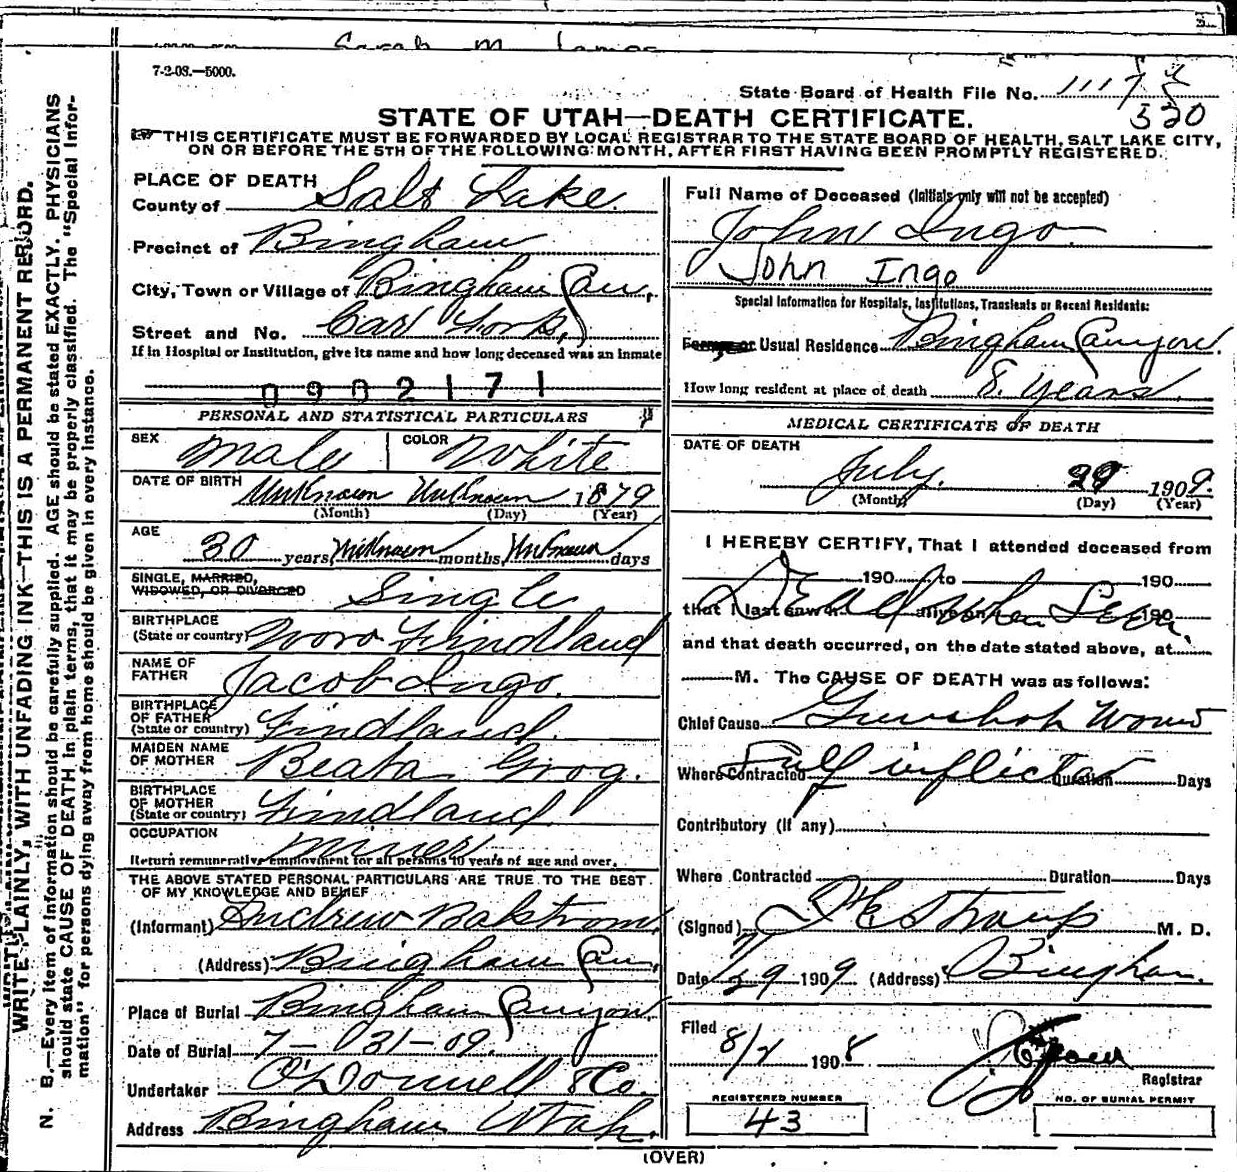 Sarah M
7-2-08.—5000.
State Board of Health File No. 1117
320
STATE OF UTAH—DEATH CERTIFICATE.
THIS CERTIFICATE MUST BE FORWARDED BY LOCAL REGISTRAR TO THE STATE BOARD OF HEALTH, SALT LAKE CITY,
ON OR BEFORE THE 5TH OF THE FOLLOWING MONTH, AFTER FIRST HAVING BEEN PROMPTLY REGISTERED.
WRITE PLAINLY, WITH UNFADING INK—THIS IS A PERMANENT RECORD.
N. B.—Every item of information should be carefully supplied. AGE should be stated EXACTLY. PHYSICIANS
should state CAUSE OF DEATH in plain terms, that it may be properly classified. The "Special Infor-
mation" for persons dying away from home should be given in every instance.
PLACE OF DEATH
County of Salt Lake
Precinct of Bingham
City, Town or Village of Bingham Can.
Street and No. Carl Fork,
If in Hospital or Institution, give its name and how long deceased was an inmate
0902171
PERSONAL AND STATISTICAL PARTICULARS
SEX Male COLOR White
DATE OF BIRTH Unknown Unknown 1879
(Month) (Day) (Year)
AGE 30 years, Unknown months, Unknown days
SINGLE, MARRIED,
WIDOWED, OR DIVORCED Single
BIRTHPLACE
(State or country) Findland
NAME OF
FATHER Jacob Ingo.
BIRTHPLACE
OF FATHER
(State or country) Findland.
MAIDEN NAME
OF MOTHER Beata Grog.
BIRTHPLACE
OF MOTHER
(State or country) Findland
OCCUPATION Miner
Return remunerative employment for all persons 10 years of age and over.
THE ABOVE STATED PERSONAL PARTICULARS ARE TRUE TO THE BEST
OF MY KNOWLEDGE AND BELIEF
(Informant) Andrew Balstrom,
(Address) Bingham Can,
Place of Burial Bingham Canyon.
Date of Burial 7-31-09.
Undertaker O'Donnell & Co.
Address Bingham Utah.
Full Name of Deceased (Initials only will not be accepted)
John Ingo.
John Ingo
Special Information for Hospitals, Institutions, Transients or Recent Residents:
Former or Usual Residence Bingham Canyon.
How long resident at place of death 8. years.
MEDICAL CERTIFICATE OF DEATH
DATE OF DEATH
July. 29 1909.
(Month) (Day) (Year)
I HEREBY CERTIFY, That I attended deceased from
190 to 190
that I last saw h alive on 190
Dead when Seen.
and that death occurred, on the date stated above, at
M. The CAUSE OF DEATH was as follows:
Chief Cause Gunshot Wound
Where Contracted Self inflicted Duration Days
Contributory (if any)
Where Contracted Duration Days
(Signed) Straup M. D.
Date 7/29 1909 (Address) Bingham.
Filed 8/2 1908
Registrar
REGISTERED NUMBER
43
NO. OF BURIAL PERMIT
(OVER)